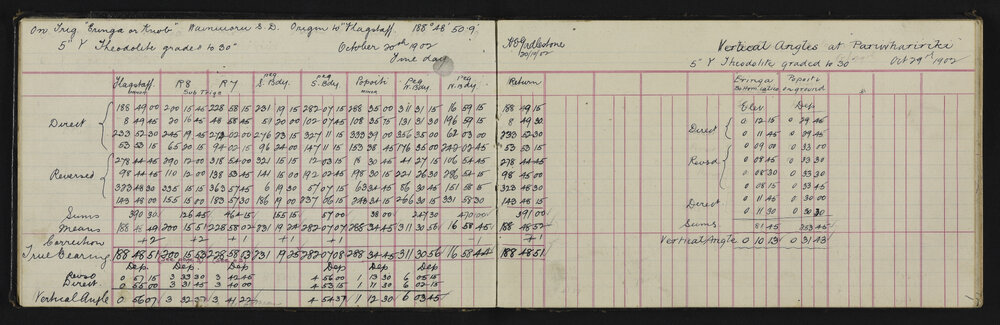 On Trig "Eringa or Knob" Wainuioru S.D. Origin to "Flagstaff" 188° 48' 50.9"
5" Y Theodolite graded to 30" October 20th 1902
Fine day
Flagstaff R8 R7 Peg S. Bdy. Peg S. Bdy. Popoiti Peg N. Bdy. Peg N. Bdy.
Sub Trigs
Direct
188 49 00 200 15 45 228 58 15 231 19 15 282 07 15 288 35 00 311 31 15 16 59 15
8 49 45 20 16 45 48 58 45 51 20 00 102 07 45 108 35 75 131 31 30 196 59 15
233 52 30 245 19 45 272 02 00 276 23 15 327 11 15 333 39 00 356 35 00 62 03 00
53 53 15 65 20 15 94 02 15 96 24 00 147 11 15 153 38 45 176 35 00 242 02 45
Reversed
278 44 45 290 12 00 318 54 00 321 15 15 12 03 15 18 30 45 41 27 15 106 54 45
98 44 45 110 12 00 138 53 45 141 15 00 192 02 45 198 30 15 221 26 30 286 54 15
323 48 30 335 15 15 363 57 45 6 19 30 57 07 15 63 34 45 86 30 45 151 58 15
143 48 00 155 15 00 183 57 30 186 19 00 237 06 15 243 34 15 266 30 15 331 58 30
Sums 390 30 126 45 464 15 155 15 57 00 38 00 247 30 470 00
Means 188 48 49 200 15 51 228 58 02 231 19 24 282 07 07 288 34 45 311 30 56 16 58 45
Correction +2 +2 +1 +1 +1 -1
True Bearing 188 48 51 200 15 53 228 58 53 231 19 25 282 07 08 288 34 45 311 30 56 16 58 44
Dep. Dep. Dep. Dep Dep. Dep.
Revsd 0 57 15 3 33 30 3 42 45 4 56 00 1 13 30 6 05 15
Direct 0 55 00 3 31 45 3 40 00 4 53 15 1 11 30 6 02 15
Vertical Angle 0 56 07 3 32 37 3 41 22 4 54 37 1 12 30 6 03 45
H.G. Girdlestone
20/10/02
Return
188 49 15
8 49 30
233 52 30
53 53 15
278 44 45
98 45 00
323 48 30
143 48 00
391 00
188 48 52
188 48 51
Vertical Angles at Pariwhariwiri
5" Y Theodolite graded to 30" Oct 29th 1902
Eringa Popoiti
on ground
Elev. Dep.
Direct
0 12 15 0 29 45
0 11 45 0 29 45
Revsd
0 09 00 0 33 00
0 08 45 0 33 30
0 08 30 0 33 30
0 08 15 0 33 45
Direct
0 11 45 0 30 00
0 11 30 0 30 30
Sums 81 45 253 45
Vertical Angle 0 10 13 0 31 43